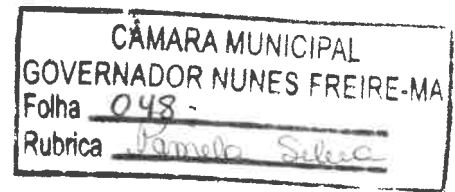 CÂMARA MUNICIPAL
GOVERNADOR NUNES FREIRE-MA
Folha 048-
Rubrica Pamela Silva